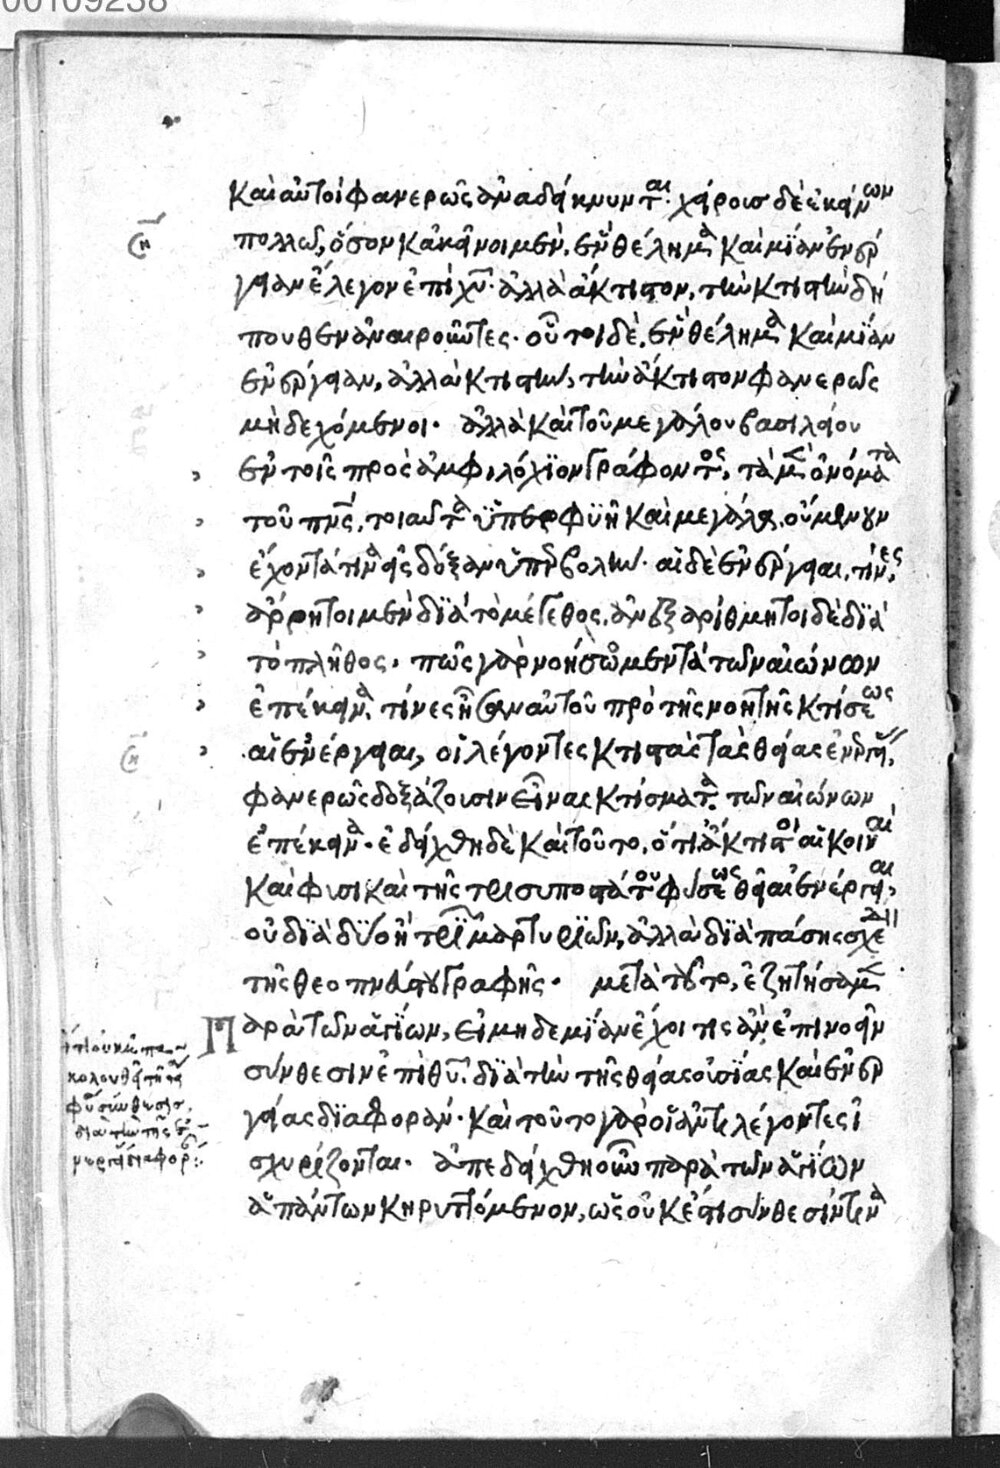 00109238
καὶ αὐτοὶ φανερῶς ἀναδείκνυνται. χείροις δὲ ἐκείνων
πολλῷ, ὅσον κἀκεῖνοι μὲν, ἓν θέλημα καὶ μίαν ἐνέρ
γειαν ἔλεγον ἐπὶ χυ. ἀλλὰ ἄκτιστον, τὴν κτιστὴν δή
πουθεν ἀναιροῦντες. οὗτοι δὲ, ἓν θέλημα καὶ μίαν
ἐνέργειαν, ἀλλὰ κτιστὴν, τὴν ἄκτιστον φανερῶς
μὴ δεχόμενοι. ἀλλὰ καὶ τοῦ μεγάλου βασιλείου
ἐν τοῖς πρὸς ἀμφιλόχιον γράφοντος, τὰ μὲν ὀνόματα
τοῦ πνς, τοιαῦτα ὑπερφυῆ καὶ μεγάλα, οὐ μὲν γουν
ἔχοντά τινα εἰς δόξαν ὑπερβολήν. αἱ δὲ ἐνέργειαι, τίνες,
ἄρρητοι μὲν διὰ τὸ μέγεθος, ἀνεξαρίθμητοι δὲ διὰ
τὸ πλῆθος. πῶς γὰρ νοήσωμεν τὰ τῶν αἰώνων
ἐπέκεινα. τίνες ἦσαν αὐτοῦ πρὸ τῆς νοητῆς κτίσεως
αἱ ἐνέργειαι, οἱ λέγοντες κτιστὰς τὰς θείας ἐνεργείας,
φανερῶς δοξάζουσιν εἶναι κτίσματα τῶν αἰώνων
ἐπέκεινα. ἐδείχθη δὲ καὶ τοῦτο, ὅτι ἄκτιστοι αἱ κοιναὶ
καὶ φυσικαὶ τῆς τρισυποστάτου φύσεως θεῖαι ἐνέργειαι,
οὐ διὰ δύο ἢ τριῶν μαρτυριῶν, ἀλλὰ διὰ πάσης σχεδὸν
τῆς θεοπνεύστου γραφῆς. μετὰ τοῦτο, ἐζητήσαμεν
παρὰ τῶν ἁγίων, εἰ μηδεμίαν ἔχοι τις ἂν ἐπινοεῖν
σύνθεσιν ἐπὶ θυ, διὰ τὴν τῆς θείας οὐσίας καὶ ἐνερ
γείας διαφοράν. καὶ τοῦτο γὰρ οἱ ἀντιλέγοντες ἰ
σχυρίζονται. ἀπεδείχθη οὖν παρὰ τῶν ἁγίων
ἁπάντων κηρυττόμενον, ὡς οὐκ ἔστι σύνθεσίν τινα
ὅτι οὐκ ἐπα
κολουθεῖ τῇ θεία
φύσει σύνθεσις,
διὰ τὴν τῆς ἐ
νεργείας διαφορ: